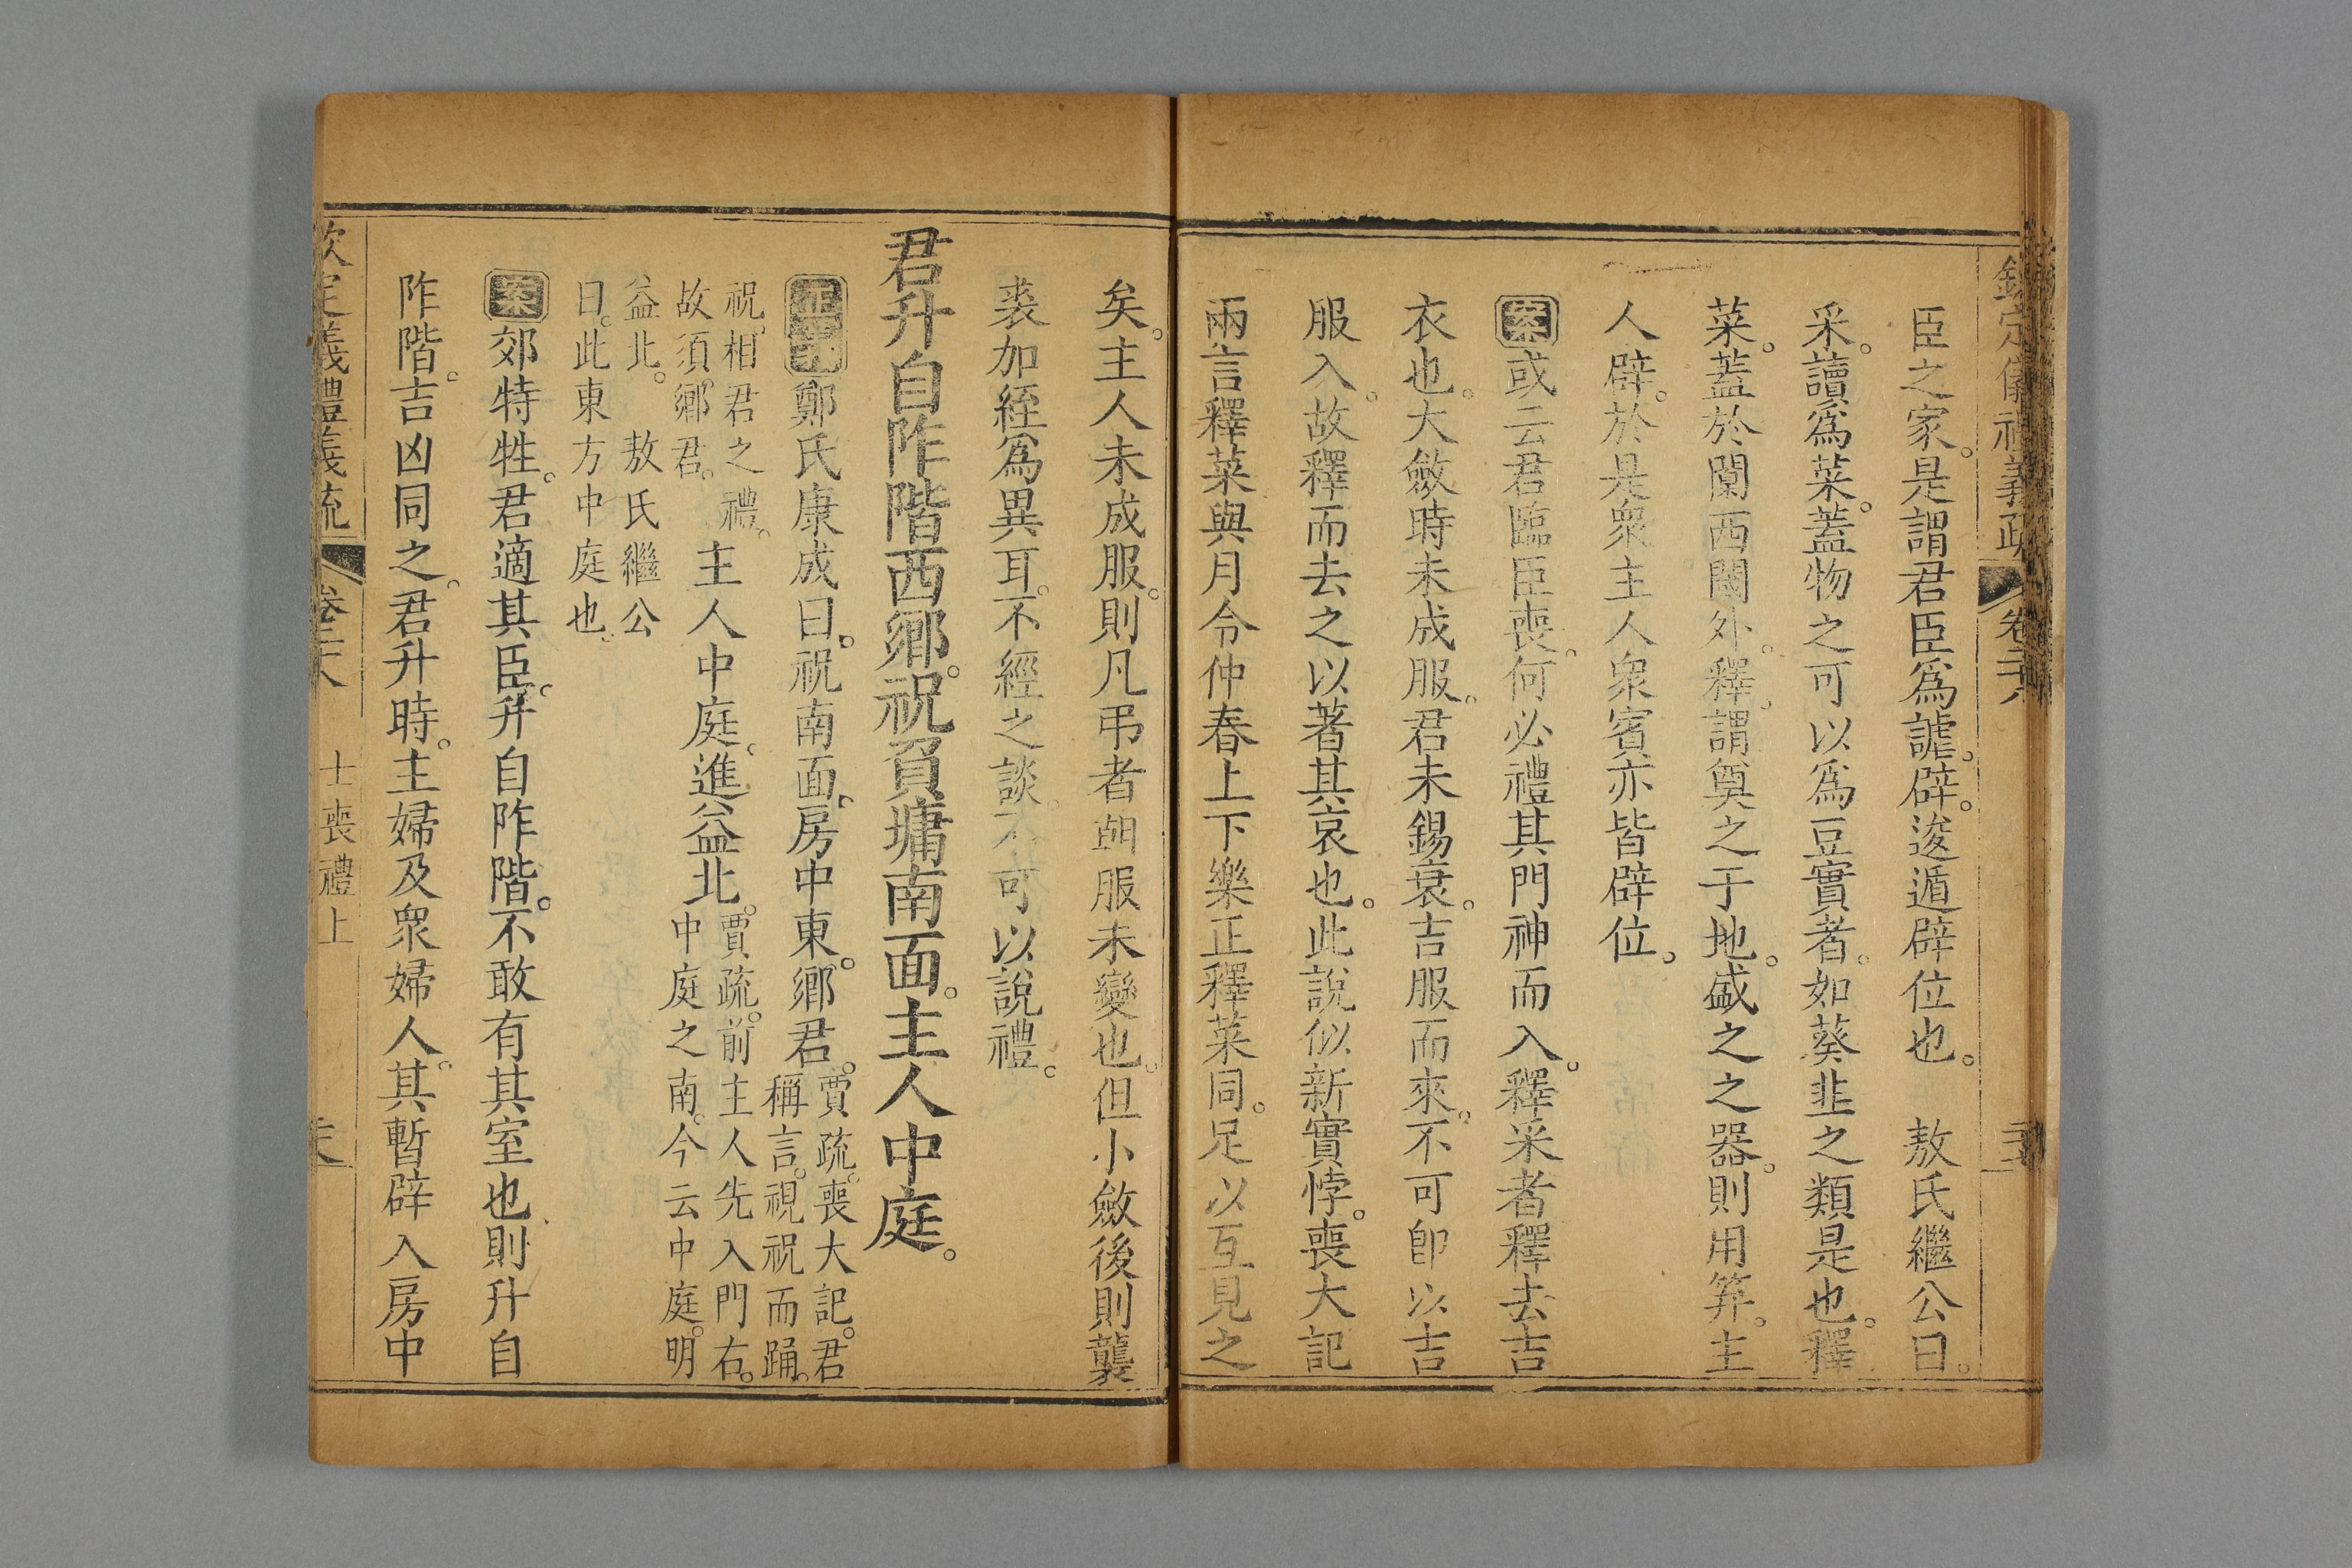 欽定儀禮義疏 卷二十八
臣之家。是謂君臣爲謔。辟。逡遁辟位也。 敖氏繼公曰。
采。讀爲菜。蓋物之可以爲豆實者。如葵韭之類是也。釋
菜。蓋於闑西閾外。釋。謂奠之于地。盛之之器。則用筭。主
人辟。於是衆主人衆賓亦皆辟位。
案或云君臨臣喪。何必禮其門神而入。釋采者釋去吉
衣也。大斂時未成服。君未錫衰。吉服而來。不可卽以吉
服入。故釋而去之以著其哀也。此說似新實悖。喪大記
兩言釋菜與月令仲春上下樂正釋菜同。足以互見之
矣。主人未成服。則凡弔者朝服未變也。但小斂後則襲
裘加絰爲異耳。不經之談。不可以說禮。
君升自阼階西鄉。祝負墉南面。主人中庭。
正義鄭氏康成曰。祝南面。房中東鄉君。賈疏。喪大記。君稱言。視祝而踊。
祝相君之禮。故須鄉君。主人中庭。進益北。賈疏。前主人先入門右。中庭之南。今云中庭。明
益北。 敖氏繼公曰。此東方中庭也。
案郊特牲。君適其臣。升自阼階。不敢有其室也則升自
阼階。吉凶同之。君升時。主婦及衆婦人。其暫辟入房中
欽定義禮義疏 卷二十八 士喪禮上